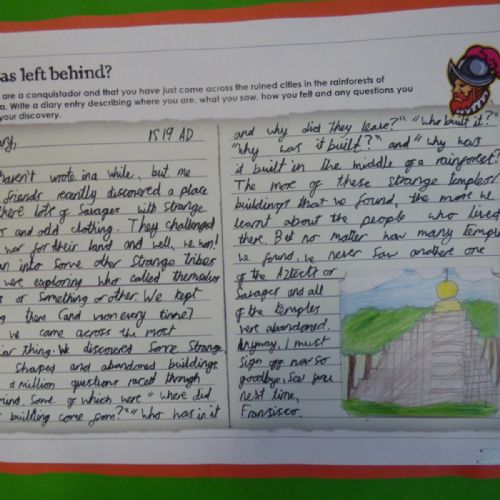 as left behind?
are a conquistador and that you have just come across the ruined cities in the rainforests of
a. Write a diary entry describing where you are, what you saw, how you felt and any questions you
your discovery.
1519 AD
haven't wrote in a while, but me
friends recently discovered a place
there lots of Savages with strange
and odd clothing. They challenged
war for their land and well, we won!
an into some other strange tribes
were exploring who called themselves
or something or other. We kept
them (and won every time)
we came across the most
thing. We discovered some strange
shaped and abandoned buildings
a million questions raced through
mind, some of which were "where did
building come from?" "Who was in it
and why did they leave?" "Who built it?"
"Why was it built?" and "why was
it built in the middle of a rainforest?"
The more of these strange temples/
buildings that we found, the more we
learnt about the people who lived
there. But no matter how many temples
we found, we never saw another one
of the Aztects or
Savages and all
of the temples
were abandoned.
Anyway, I must
sign off now so
goodbye, see you
next time,
Fransisco.